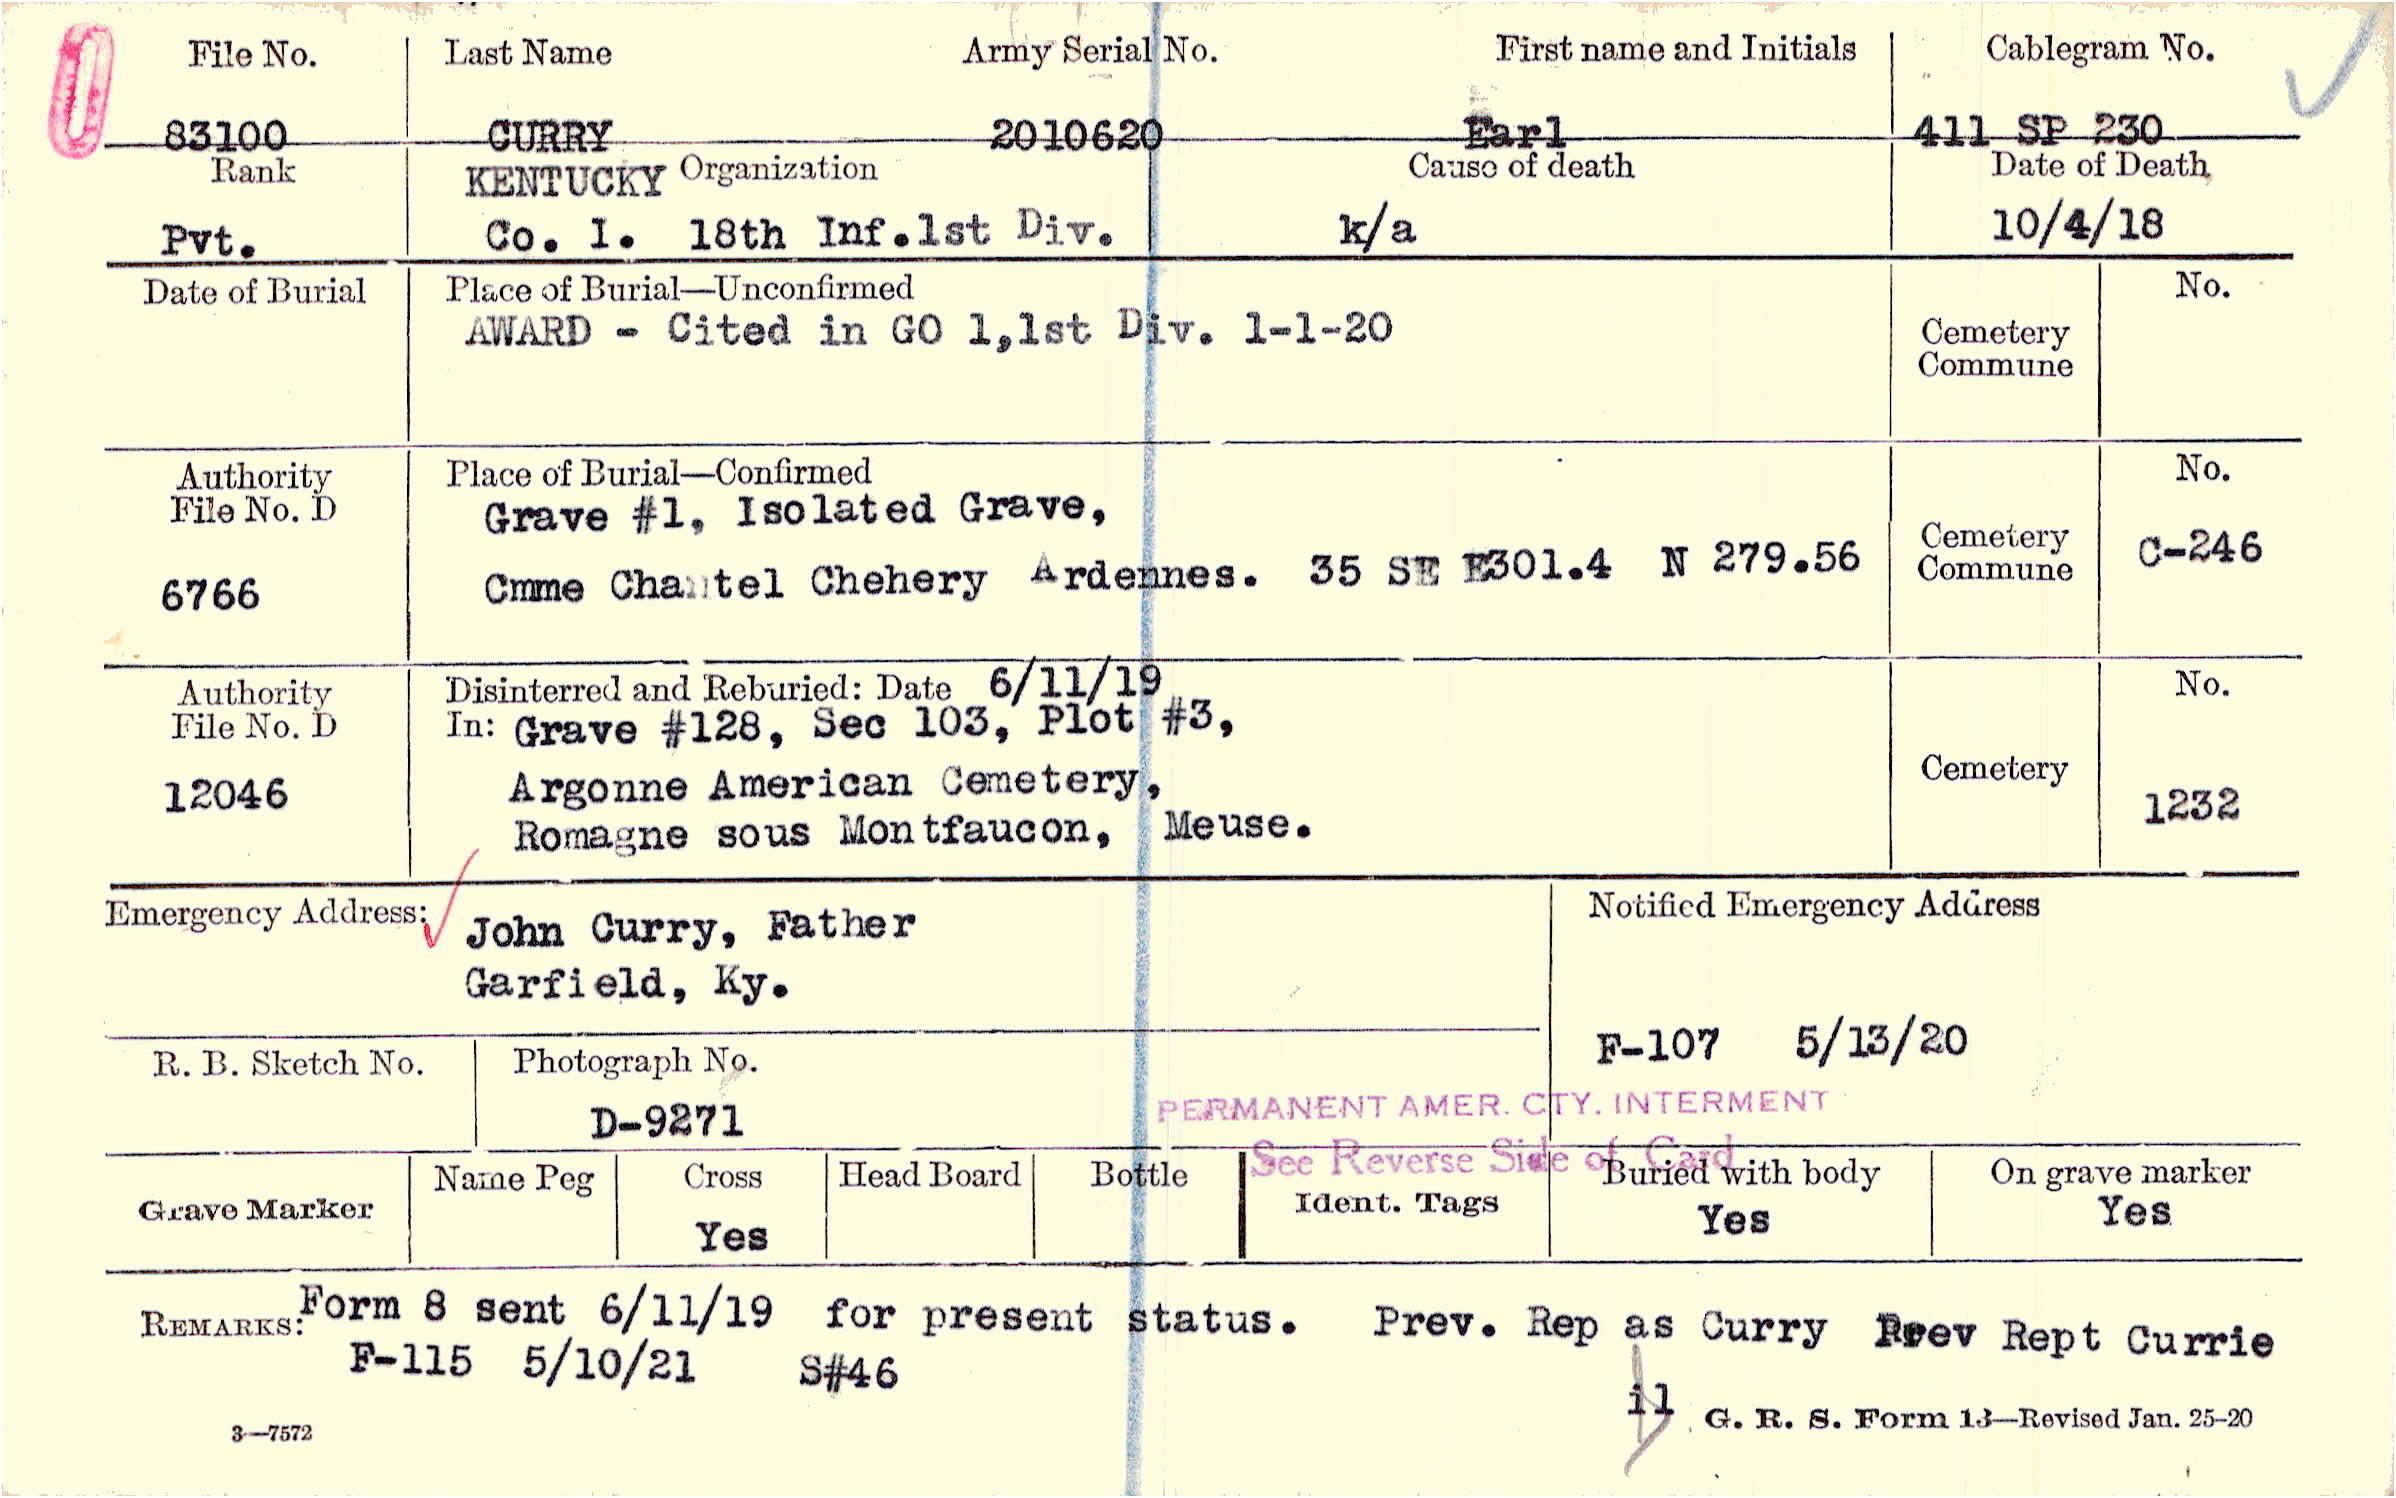 File No. Last Name Army Serial No. First name and Initials Cablegram No.
83100 CURRY 2010620 Earl 411 SP 230
Rank KENTUCKY Organization Cause of death Date of Death
Pvt. Co. I. 18th Inf.1st Div. k/a 10/4/18
Date of Burial Place of Burial—Unconfirmed No.
AWARD - Cited in GO 1,1st Div. 1-1-20
Cemetery
Commune
Authority Place of Burial—Confirmed No.
File No. D Grave #1, Isolated Grave,
Cemetery
6766 Cmme Chantel Chehery Ardennes. 35 SE E301.4 N 279.56 Commune C-246
Authority Disinterred and Reburied: Date 6/11/19 No.
File No. D In: Grave #128, Sec 103, Plot #3,
12046 Argonne American Cemetery, Cemetery 1232
Romagne sous Montfaucon, Meuse.
Emergency Address: John Curry, Father Notified Emergency Address
Garfield, Ky.
F-107 5/13/20
R. B. Sketch No. Photograph No.
D-9271
PERMANENT AMER. CTY. INTERMENT
See Reverse Side of Card
Grave Marker Name Peg Cross Head Board Bottle Ident. Tags Buried with body On grave marker
Yes Yes Yes
REMARKS: Form 8 sent 6/11/19 for present status. Prev. Rep as Curry Prev Rept Currie
F-115 5/10/21 S#46
il
3—7572 G. R. S. Form 13—Revised Jan. 25-20